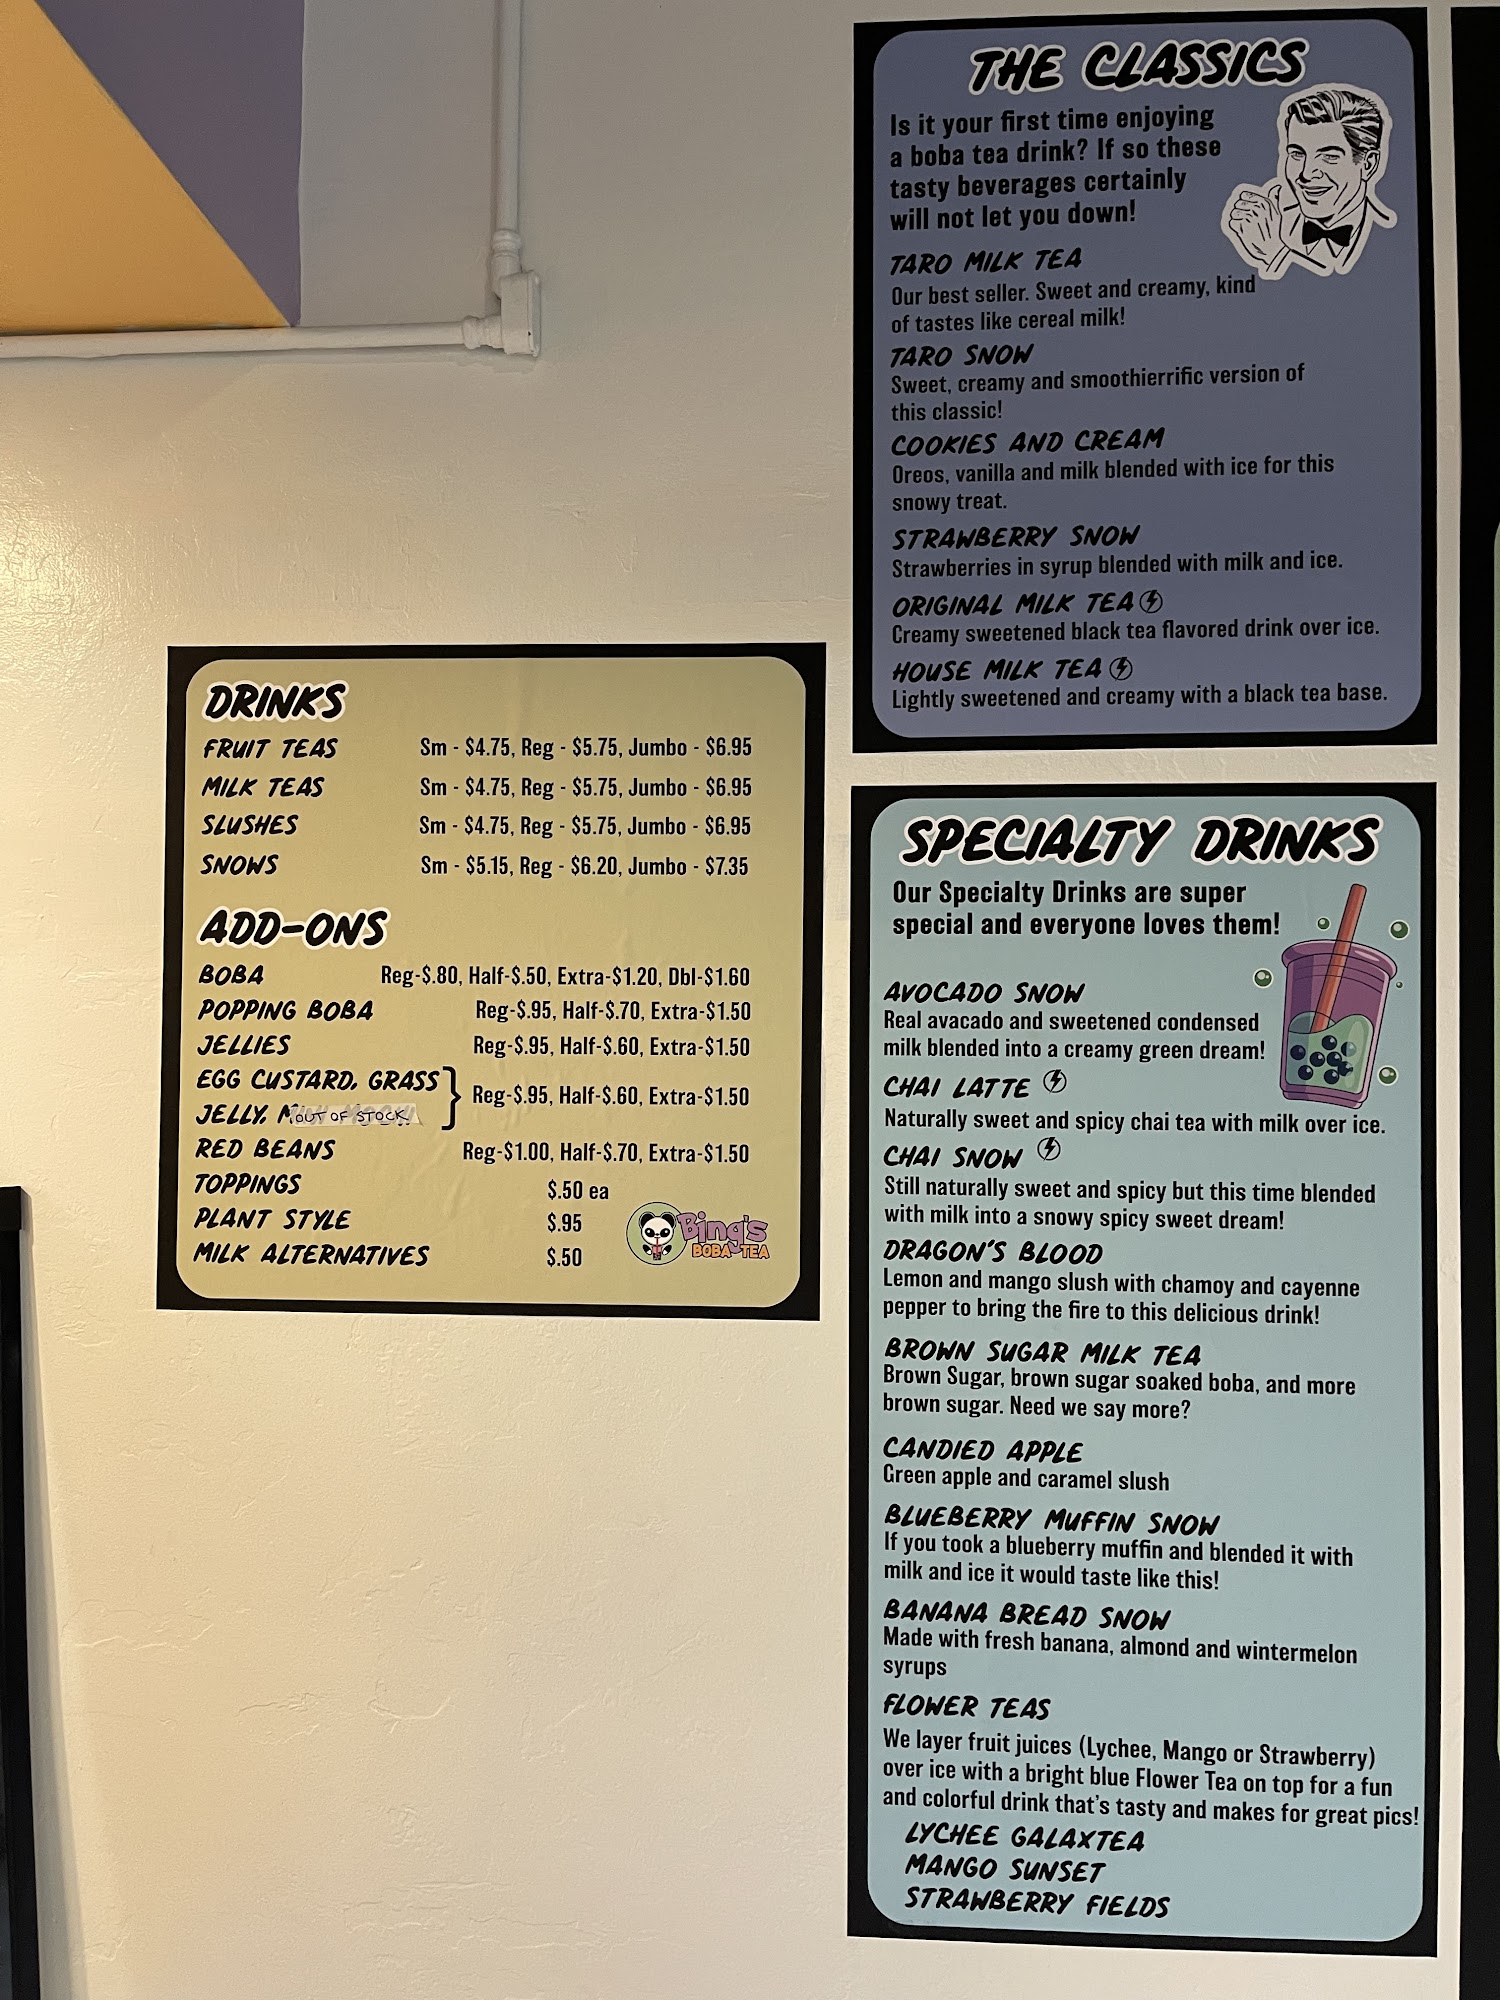 DRINKS
FRUIT TEAS Sm - $4.75, Reg - $5.75, Jumbo - $6.95
MILK TEAS Sm - $4.75, Reg - $5.75, Jumbo - $6.95
SLUSHES Sm - $4.75, Reg - $5.75, Jumbo - $6.95
SNOWS Sm - $5.15, Reg - $6.20, Jumbo - $7.35
ADD-ONS
BOBA Reg-$.80, Half-$.50, Extra-$1.20, Dbl-$1.60
POPPING BOBA Reg-$.95, Half-$.70, Extra-$1.50
JELLIES Reg-$.95, Half-$.60, Extra-$1.50
EGG CUSTARD, GRASS
JELLY, OUT OF STOCK } Reg-$.95, Half-$.60, Extra-$1.50
RED BEANS Reg-$1.00, Half-$.70, Extra-$1.50
TOPPINGS $.50 ea
PLANT STYLE $.95
MILK ALTERNATIVES $.50
Bing's
BOBA TEA
THE CLASSICS
Is it your first time enjoying
a boba tea drink? If so these
tasty beverages certainly
will not let you down!
TARO MILK TEA
Our best seller. Sweet and creamy, kind
of tastes like cereal milk!
TARO SNOW
Sweet, creamy and smoothierrific version of
this classic!
COOKIES AND CREAM
Oreos, vanilla and milk blended with ice for this
snowy treat.
STRAWBERRY SNOW
Strawberries in syrup blended with milk and ice.
ORIGINAL MILK TEA
Creamy sweetened black tea flavored drink over ice.
HOUSE MILK TEA
Lightly sweetened and creamy with a black tea base.
SPECIALTY DRINKS
Our Specialty Drinks are super
special and everyone loves them!
AVOCADO SNOW
Real avacado and sweetened condensed
milk blended into a creamy green dream!
CHAI LATTE
Naturally sweet and spicy chai tea with milk over ice.
CHAI SNOW
Still naturally sweet and spicy but this time blended
with milk into a snowy spicy sweet dream!
DRAGON'S BLOOD
Lemon and mango slush with chamoy and cayenne
pepper to bring the fire to this delicious drink!
BROWN SUGAR MILK TEA
Brown Sugar, brown sugar soaked boba, and more
brown sugar. Need we say more?
CANDIED APPLE
Green apple and caramel slush
BLUEBERRY MUFFIN SNOW
If you took a blueberry muffin and blended it with
milk and ice it would taste like this!
BANANA BREAD SNOW
Made with fresh banana, almond and wintermelon
syrups
FLOWER TEAS
We layer fruit juices (Lychee, Mango or Strawberry)
over ice with a bright blue Flower Tea on top for a fun
and colorful drink that's tasty and makes for great pics!
LYCHEE GALAXTEA
MANGO SUNSET
STRAWBERRY FIELDS